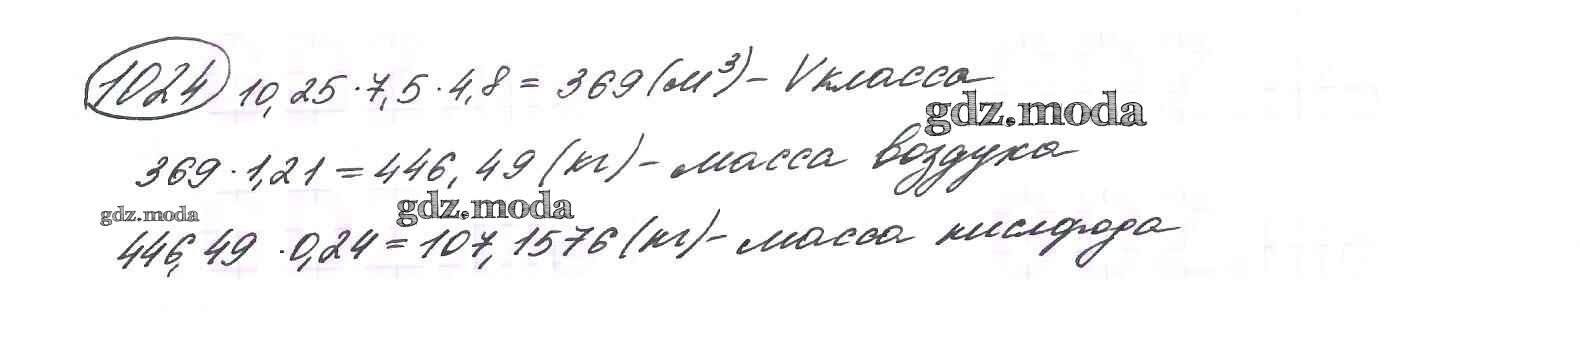 1024 10,25·7,5·4,8 = 369 (м³) – V класса
gdz.moda
369·1,21 = 446,49 (кг) – масса воздуха
gdz.moda gdz.moda
446,49 ·0,24 = 107,1576 (кг) – масса кислорода